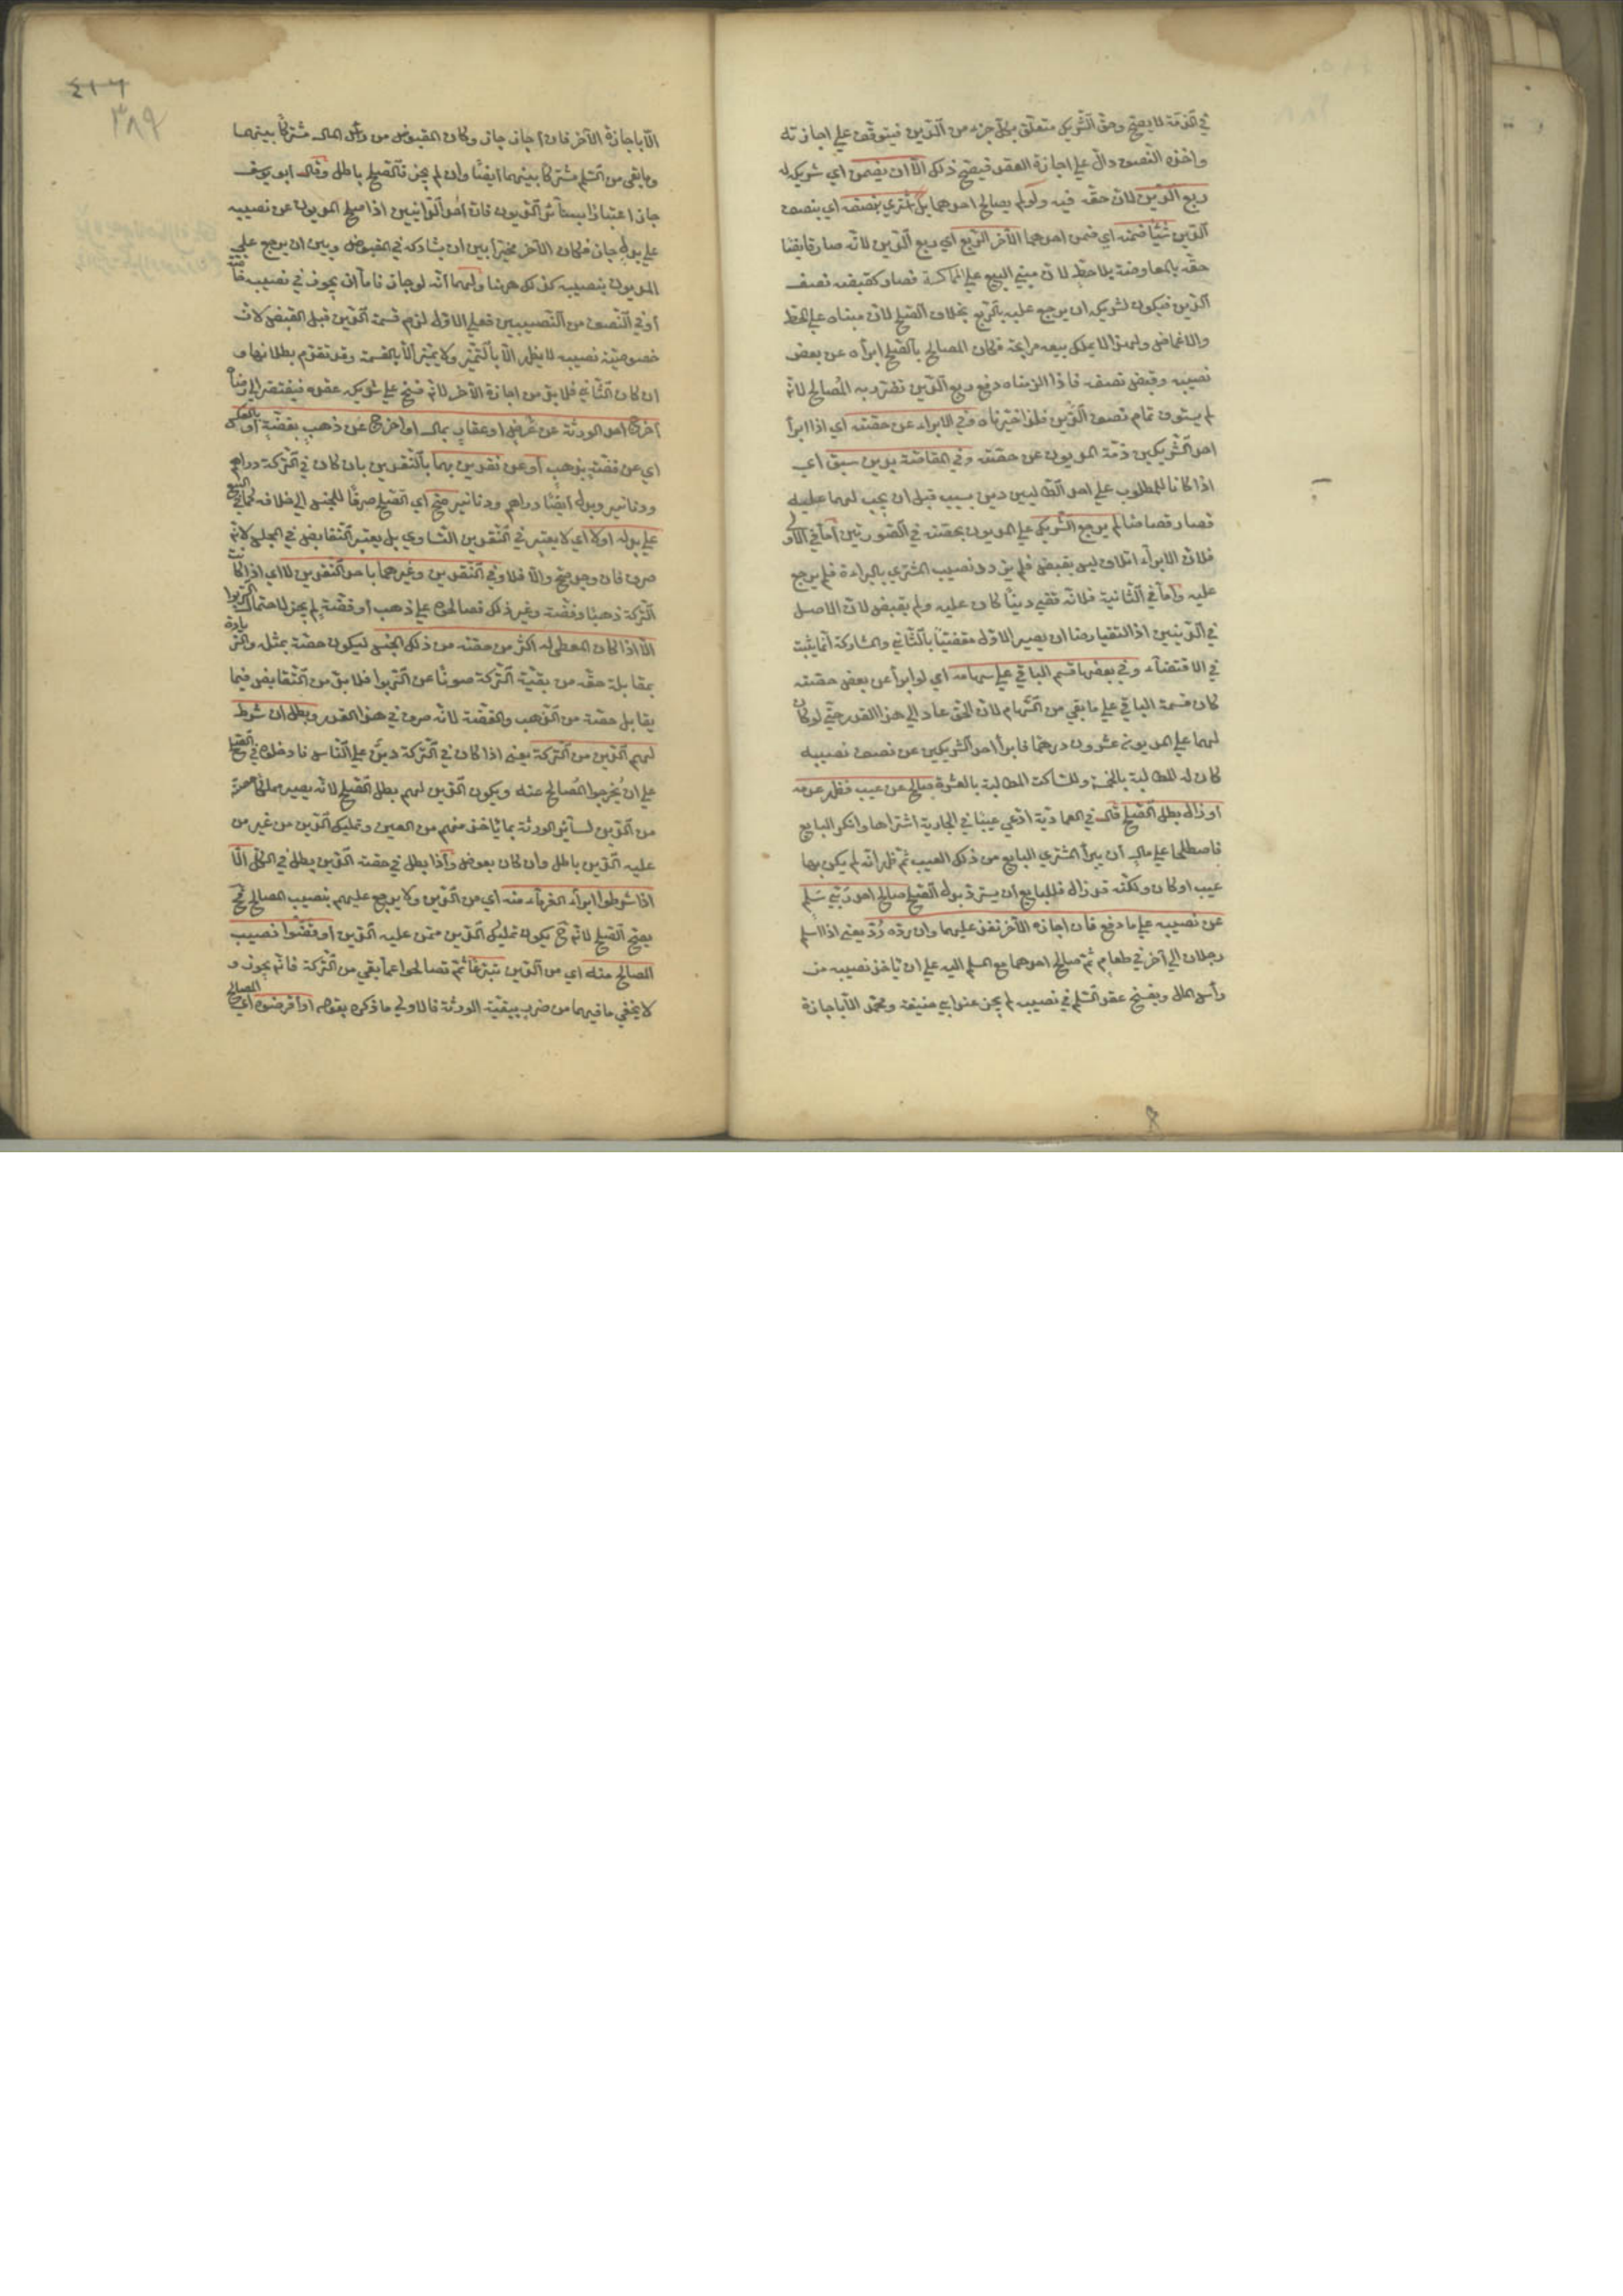 في الذمّة لا يصحّ وحقّ الشّريك متعلّق بكلّ جزء من الدّين فيتوقّف علي اجازته
واخذه النّصف دالّ علي اجازة العقد فيصحّ ذلك الّا ان يضمن اي شريكه له
ربع الدّين لانّ حقّه فيه ولو لم يصالح احدهما بل اشتري بنصفه اي بنصف
الدّين شيئًا ضمنه اي ضمن احدهما الآخر الرّبع اي ربع الدّين لانّه صار قابضا
حقّه بالمعاوضة بلا حطّ لانّ مبني البيع علي المماكسة فصار كقبض نصف
الدّين فيكون لشريكه ان يرجع عليه بالرّبع بخلاف الصّلح لانّ مبناه علي الحطّ
والاغماض ولهذا لا يملك بيعه مرابحة فكان المصالح بالصّلح ابرأه عن بعض
نصيبه وقبض نصفه فاذا الزمناه دفع ربع الدّين تضرّر به المُصالح لانّه
لم يستوف تمام نصف الدّين فلذا خيّرناه وفي الابراء عن حصّته اي اذا ابرأ
احد الشّريكين ذمّة المديون عن حصّته وفي المقاصّة بدين سبق اي
اذا كان للمطلوب علي احد الطّالبين دين بسبب قبل ان يجب لهما عليه
فصار قصاصًا لم يرجع الشّريك علي المديون بحصّته في الصّورتين امّا في الاولي
فلانّ الابراء اتلاف ليس بقبض فلم يزدد نصيب المشتري بالبراءة فلم يرجع
عليه وامّا في الثّانية فلانّه قضي دينًا كان عليه ولم يقبض لانّ الاصل
في الدّينين اذا التقيا قصاصا ان يصير الاوّل مقضيًّا بالثّاني والمشاركة انّما يثبت
في الاقتضاء وفي بعضها قسم الباقي علي سهامه اي لو ابرأ عن بعض حصّته
كان قسمة الباقي علي ما بقي من السّهام لانّ الحقّ عاد الي هذا القدر حتّي لو كان
لهما علي المديون عشرون درهمًا فابرأ احد الشّريكين عن نصف نصيبه
كان له المطالبة بالخمسة وللساكت المطالبة بالعشرة صالح عن عيب فظهر عدمه
او زال بطل الصّلح قال في العماديّة ادّعي عيبا في الجارية اشتراها وانكر البايع
فاصطلحا علي مال ان يبرأ المشتري البايع من ذلك العيب ثمّ ظهر انّه لم يكن بها
عيب او كان ولكنّه قد زال فللبايع ان يستردّ بدل الصّلح صالح احد ربّي سَلم
عن نصيبه علي ما دفع فان اجازه الآخر نفذ عليهما وان ردّه رُدّ يعني اذا اسلم
رجلان الي آخر في طعام ثمّ صالح احدهما مع المسلم اليه علي ان ياخذ نصيبه من
رأس المال ويفسخ عقد السّلم في نصيبه لم يجز عند ابي حنيفة ومحمّد الّا باجازة
٤١٦
٣٨٩
الّا باجازة الآخر فان اجاز جاز وكان المقبوض من رأس المال مشتركًا بينهما
وما بقي من السّلم مشتركًا بينهما ايضًا وان لم يجز فالصّلح باطل وقال ابو يوسف
جاز اعتبارًا بسائر الدّيون فانّ احد الدّائنين اذا صالح المديون عن نصيبه
علي بدل جاز فكان الآخر مخيّرا بين ان يشاركه في المقبوض وبين ان يرجع علي
المديون بنصيبه كذلك هنا ولهما انّه لو جاز فامّا ان يجوز في نصيبه خاصّة
او في النّصف من النّصيبين فعلي الاوّل لزم قسمة الدّين قبل القبض لانّ
خصوصيّة نصيبه لا يظهر الّا بالتّميّز ولا يتميّز الّا بالقسمة وقد تقدّم بطلانها و
ان كان الثّاني فلا بدّ من اجازة الآخر لانّه فسخ علي شريكه عقده فيفتقر الي رضاه
اخرج احد الورثة عن عَرض او عقار بمال او اخرج عن ذهب بفضّة او بالعكس
اي عن فضّة بذهب او عن نقدين بهما بالنّقدين بان كان في التّركة دراهم
ودنانير وبدله ايضًا دراهم ودنانير صحّ اي الصّلح صرفًا للجنس الي خلافه كما في البيع
علي بدله اولا اي لا يعتبر في النّقدين التّساوي بل يعتبر التّقابض في المجلس لانّه
صرف فان وجد صحّ والّا فلا وفي النّقدين وغيرهما باحد النّقدين لا اي اذا كانت
التّركة ذهبًا وفضّة وغير ذلك فصالحوه علي ذهب او فضّة لم يجز لاحتمال الرّبوا
الّا اذا كان المعطي له اكثر من حصّته من ذلك الجنس ليكون حصّته بمثله والزّيادة
بمقابلة حقّه من بقيّة التّركة صونًا عن الرّبوا فلا بدّ من التّقابض فيما
يقابل حصّته من الذّهب والفضّة لانّه صرف في هذا القدر وبطل ان شرط
لهم الدّين من التّركة يعني اذا كان في التّركة دينٌ علي النّاس فادخلوه في الصّلح
علي ان يُخرجوا المُصالح عنه ويكون الدّين لهم بطل الصّلح لانّه يصير مملّكا حصّته
من الدّين لسائر الورثة بما ياخذ منهم من العين وتمليك الدّين من غير من
عليه الدّين باطل وان كان بعوض واذا بطل في حصّته الدّين بطل في الكلّ الّا
اذا شرطوا ابراء الغرماء منه اي من الدّين ولا يرجع عليهم بنصيب المصالح فح
يصحّ الصّلح لانّه ح يكون تمليك الدّين ممّن عليه الدّين او قضوا نصيب
المصالح منه اي من الدّين تبرّعًا ثمّ تصالحوا عمّا بقي من التّركة فانّه يجوز و
لا يخفي ما فيهما من ضرر ببقيّة الورثة فالاولي ما ذكره بقوله او اقرضوه اي المصالح